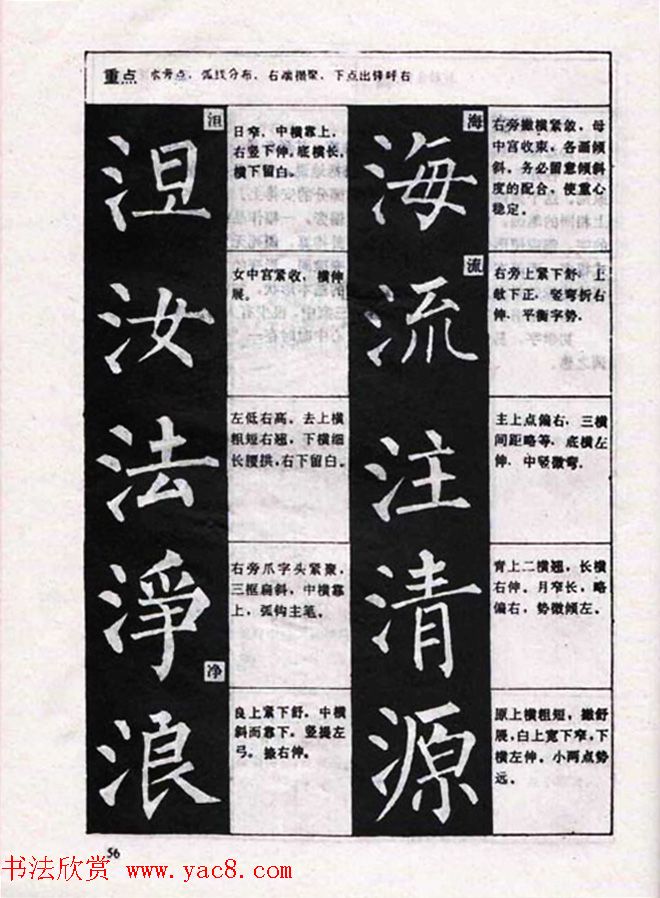 重点 水旁点、弧线分布、右端攒聚、下点出锋呼右
海
海
右旁撇横紧敛,母
中宫收束,各画倾
斜,务必留意倾斜
度的配合,使重心
稳定。
流
流
右旁上紧下舒,上
敧下正,竖弯折右
伸,平衡字势.
注
主上点偏右,三横
间距略等,底横左
伸,中竖微弯.
清
青上二横翘,长横
右伸。月窄长,略
偏右,势微倾左。
源
原上横粗短,撇舒
展,白上宽下窄,下
横左伸。小两点势
远。
泹
洰
日窄,中横靠上,
右竖下伸,底横长,
横下留白。
汝
女中宫紧收,横伸
展。
法
左低右高。去上横
粗短右翘,下横细
长腰拱,右下留白。
淨
净
右旁爪字头紧聚,
三框扁斜,中横靠
上,弧钩主笔。
浪
良上紧下舒,中横
斜而靠下。竖提左
弓。捺右伸。
56
书法欣赏 www.yac8.com